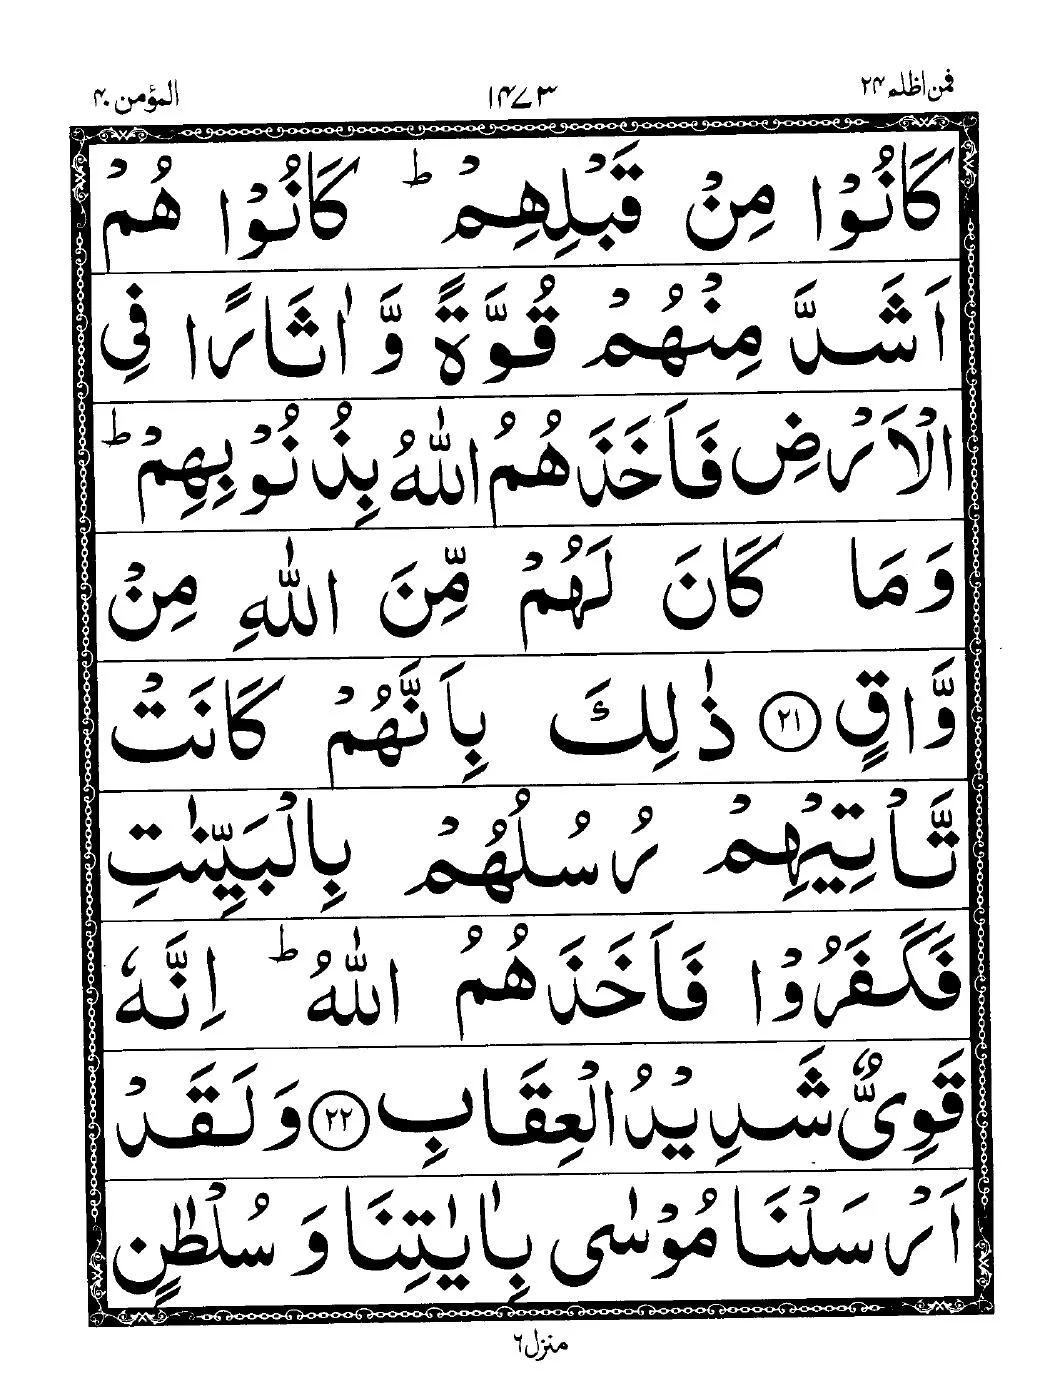 فمن اظلم ۲۴ ۱۴۷۳ المؤمن ۴۰
كَانُوْا مِنْ قَبْلِهِمْ ؕ كَانُوْا هُمْ
اَشَدَّ مِنْهُمْ قُوَّةً وَّ اٰثَارًا فِي
الْاَرْضِ فَاَخَذَهُمُ اللّٰهُ بِذُنُوْبِهِمْ ؕ
وَمَا كَانَ لَهُمْ مِّنَ اللّٰهِ مِنْ
وَّاقٍ ﴿۲۱﴾ ذٰلِكَ بِاَنَّهُمْ كَانَتْ
تَّاْتِيْهِمْ رُسُلُهُمْ بِالْبَيِّنٰتِ
فَكَفَرُوْا فَاَخَذَهُمُ اللّٰهُ ؕ اِنَّهٗ
قَوِيٌّ شَدِيْدُ الْعِقَابِ ﴿۲۲﴾ وَلَقَدْ
اَرْسَلْنَا مُوْسٰى بِاٰيٰتِنَا وَ سُلْطٰنٍ
منزل ٦